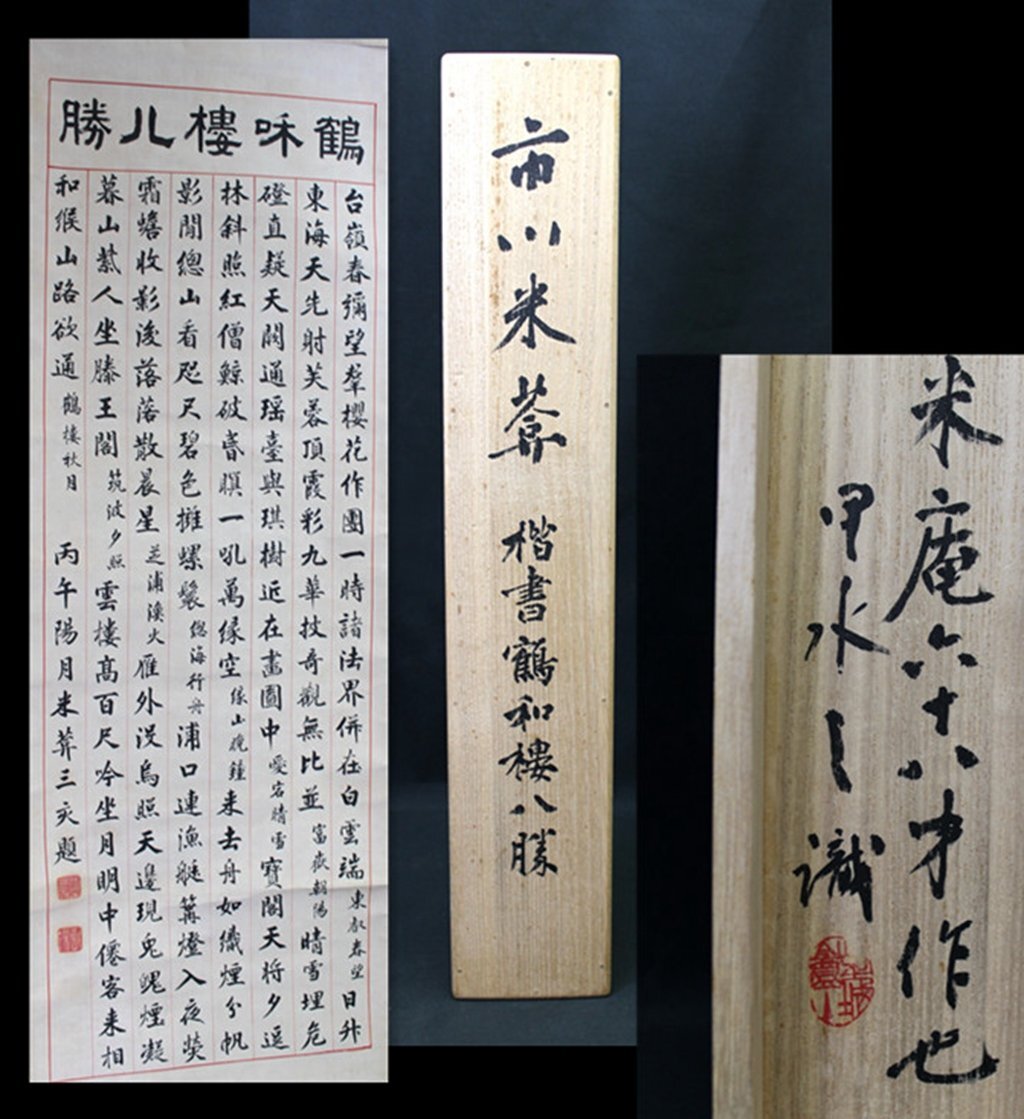 鶴咊樓八勝
台嶺春彌望羣櫻花作團一時諸法界併在白雲端 東叡春望 日升
東海天先射芙蓉頂霞彩九華披奇觀無比並 富嶽朝陽 晴雪埋危
磴直疑天闕通瑶臺與琪樹近在畫圖中 愛宕晴雪 寶閣天將夕遥
林斜照紅僧鯨破昏暝一吼萬緣空 緣山晚鐘 来去舟如織煙分帆
影閒總山看咫尺碧色擁螺鬟 總海行舟 浦口連漁艇篝燈入夜熒
霜蟾收影後落落散晨星 芝浦漁火 雁外没烏照天邊現兔魄煙凝
暮山紫人坐滕王閣 筑波夕照 雲樓高百尺吟坐月明中僊客来相
和緱山路欲通 鶴樓秋月 丙午陽月米葊三亥題
市川米葊 楷書鶴和樓八勝
米庵六十八才作也
甲水之識